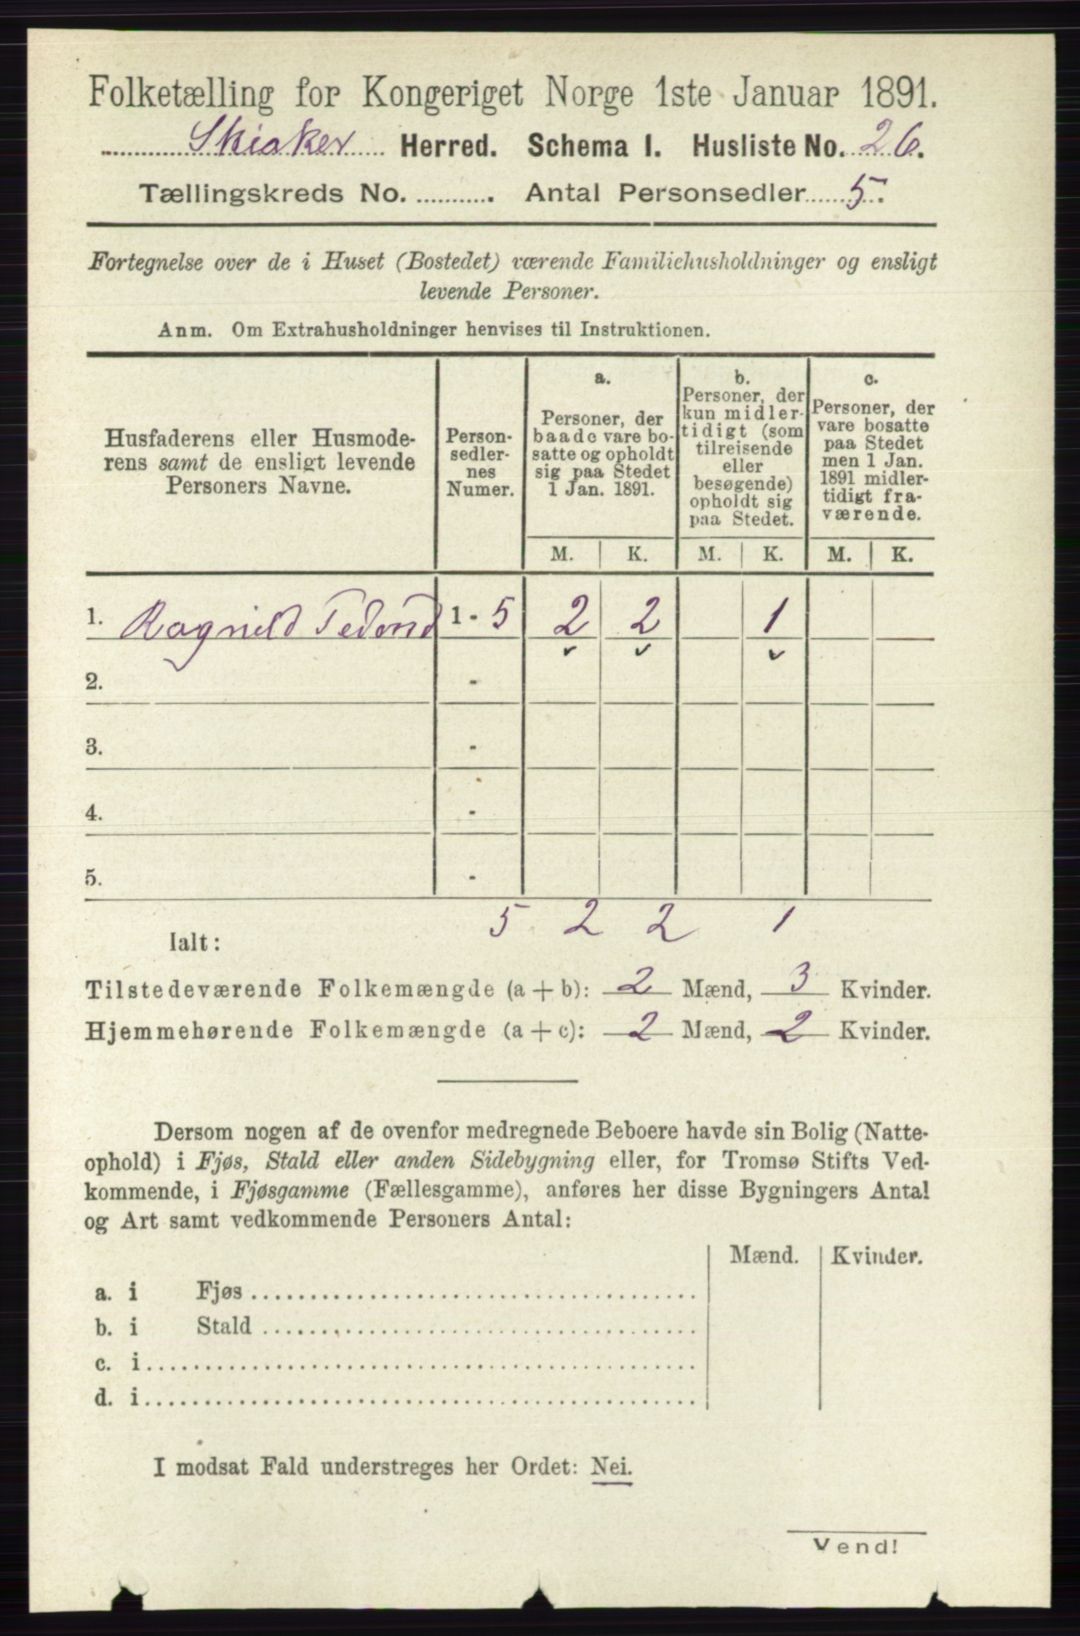 Folketælling for Kongeriget Norge 1ste Januar 1891.
Skiaker Herred. Schema I. Husliste No. 26.
Tællingskreds No. .......... Antal Personsedler 5.
Fortegnelse over de i Huset (Bostedet) værende Familiehusholdninger og ensligt
levende Personer.
Anm. Om Extrahusholdninger henvises til Instruktionen.
Husfaderens eller Husmode-
rens samt de ensligt levende
Personers Navne.
Person-
sedler-
nes
Numer.
a.
Personer, der
baade vare bo-
satte og opholdt
sig paa Stedet
1 Jan. 1891.
b.
Personer, der
kun midler-
tidigt (som
tilreisende
eller
besøgende)
opholdt sig
paa Stedet.
c.
Personer, der
vare bosatte
paa Stedet
men 1 Jan.
1891 midler-
tidigt fra-
værende.
M. K. M. K. M. K.
1. Ragnild 1 - 5 2 2 1
2. -
3. -
4. -
5. -
5 2 2 1
Ialt:
Tilstedeværende Folkemængde (a + b): 2 Mænd, 3 Kvinder.
Hjemmehørende Folkemængde (a + c): 2 Mænd, 2 Kvinder.
Dersom nogen af de ovenfor medregnede Beboere havde sin Bolig (Natte-
ophold) i Fjøs, Stald eller anden Sidebygning eller, for Tromsø Stifts Ved-
kommende, i Fjøsgamme (Fællesgamme), anføres her disse Bygningers Antal
og Art samt vedkommende Personers Antal:
Mænd. Kvinder.
a. i Fjøs
b. i Stald
c. i
d. i
I modsat Fald understreges her Ordet: Nei.
Vend!